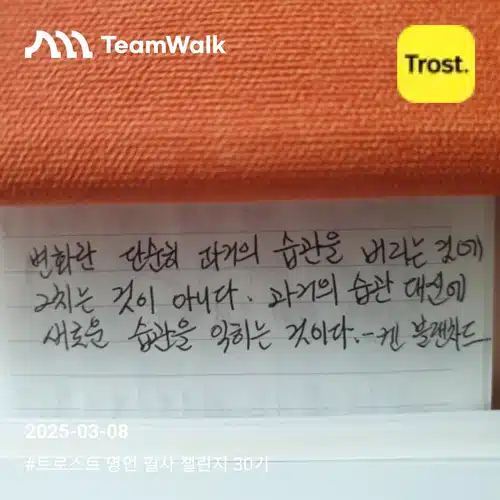 TeamWalk
Trost.
변화란 단순히 과거의 습관을 버리는 것에
그치는 것이 아니다. 과거의 습관 대신에
새로운 습관을 익히는 것이다. - 켄 블랜차드
2025-03-08
#트로스트 명언 필사 챌린지 30기